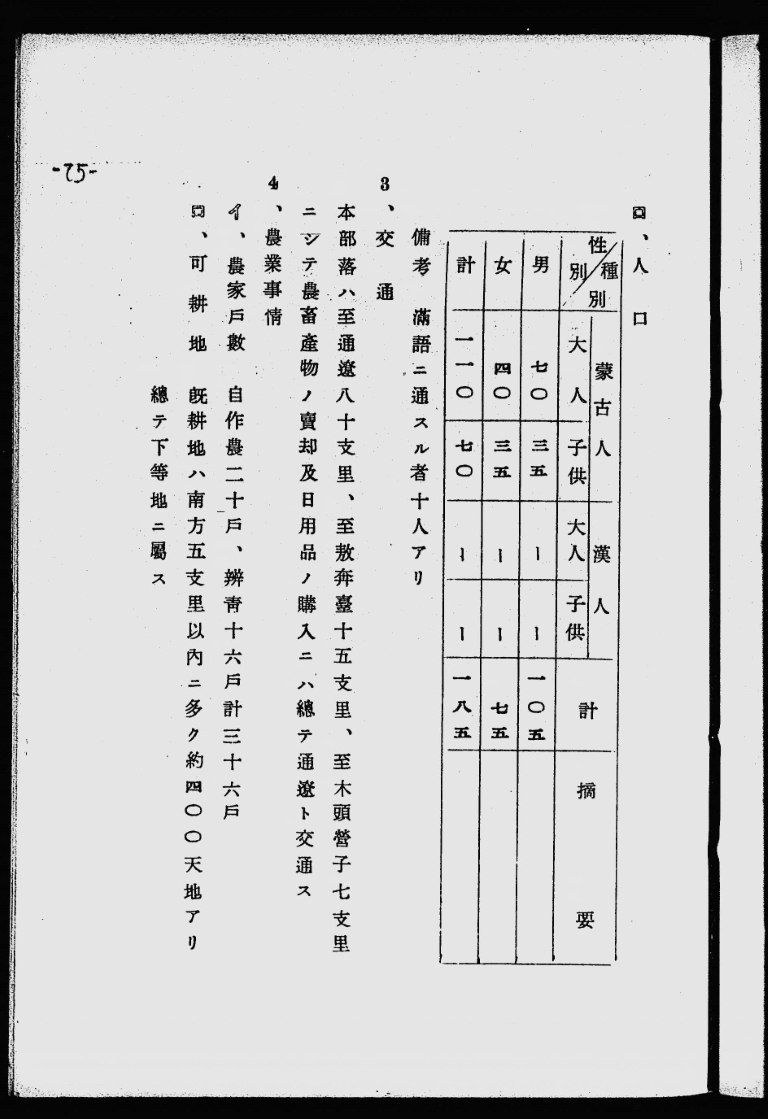 ロ、人口
性別/種別 蒙古人 漢人 計 摘要
大人 子供 大人 子供
男 七〇 三五 ー ー 一〇五
女 四〇 三五 ー ー 七五
計 一一〇 七〇 ー ー 一八五
備考 滿語ニ通スル者十人アリ
3、交通
本部落ハ至通遼八十支里、至敖奔臺十五支里、至木頭營子七支里
ニシテ農畜產物ノ賣却及日用品ノ購入ニハ總テ通遼ト交通ス
4、農業事情
イ、農家戶數 自作農二十戶、辨靑十六戶計三十六戶
ロ、可耕地 旣耕地ハ南方五支里以內ニ多ク約四〇〇天地アリ
總テ下等地ニ屬ス
-75-